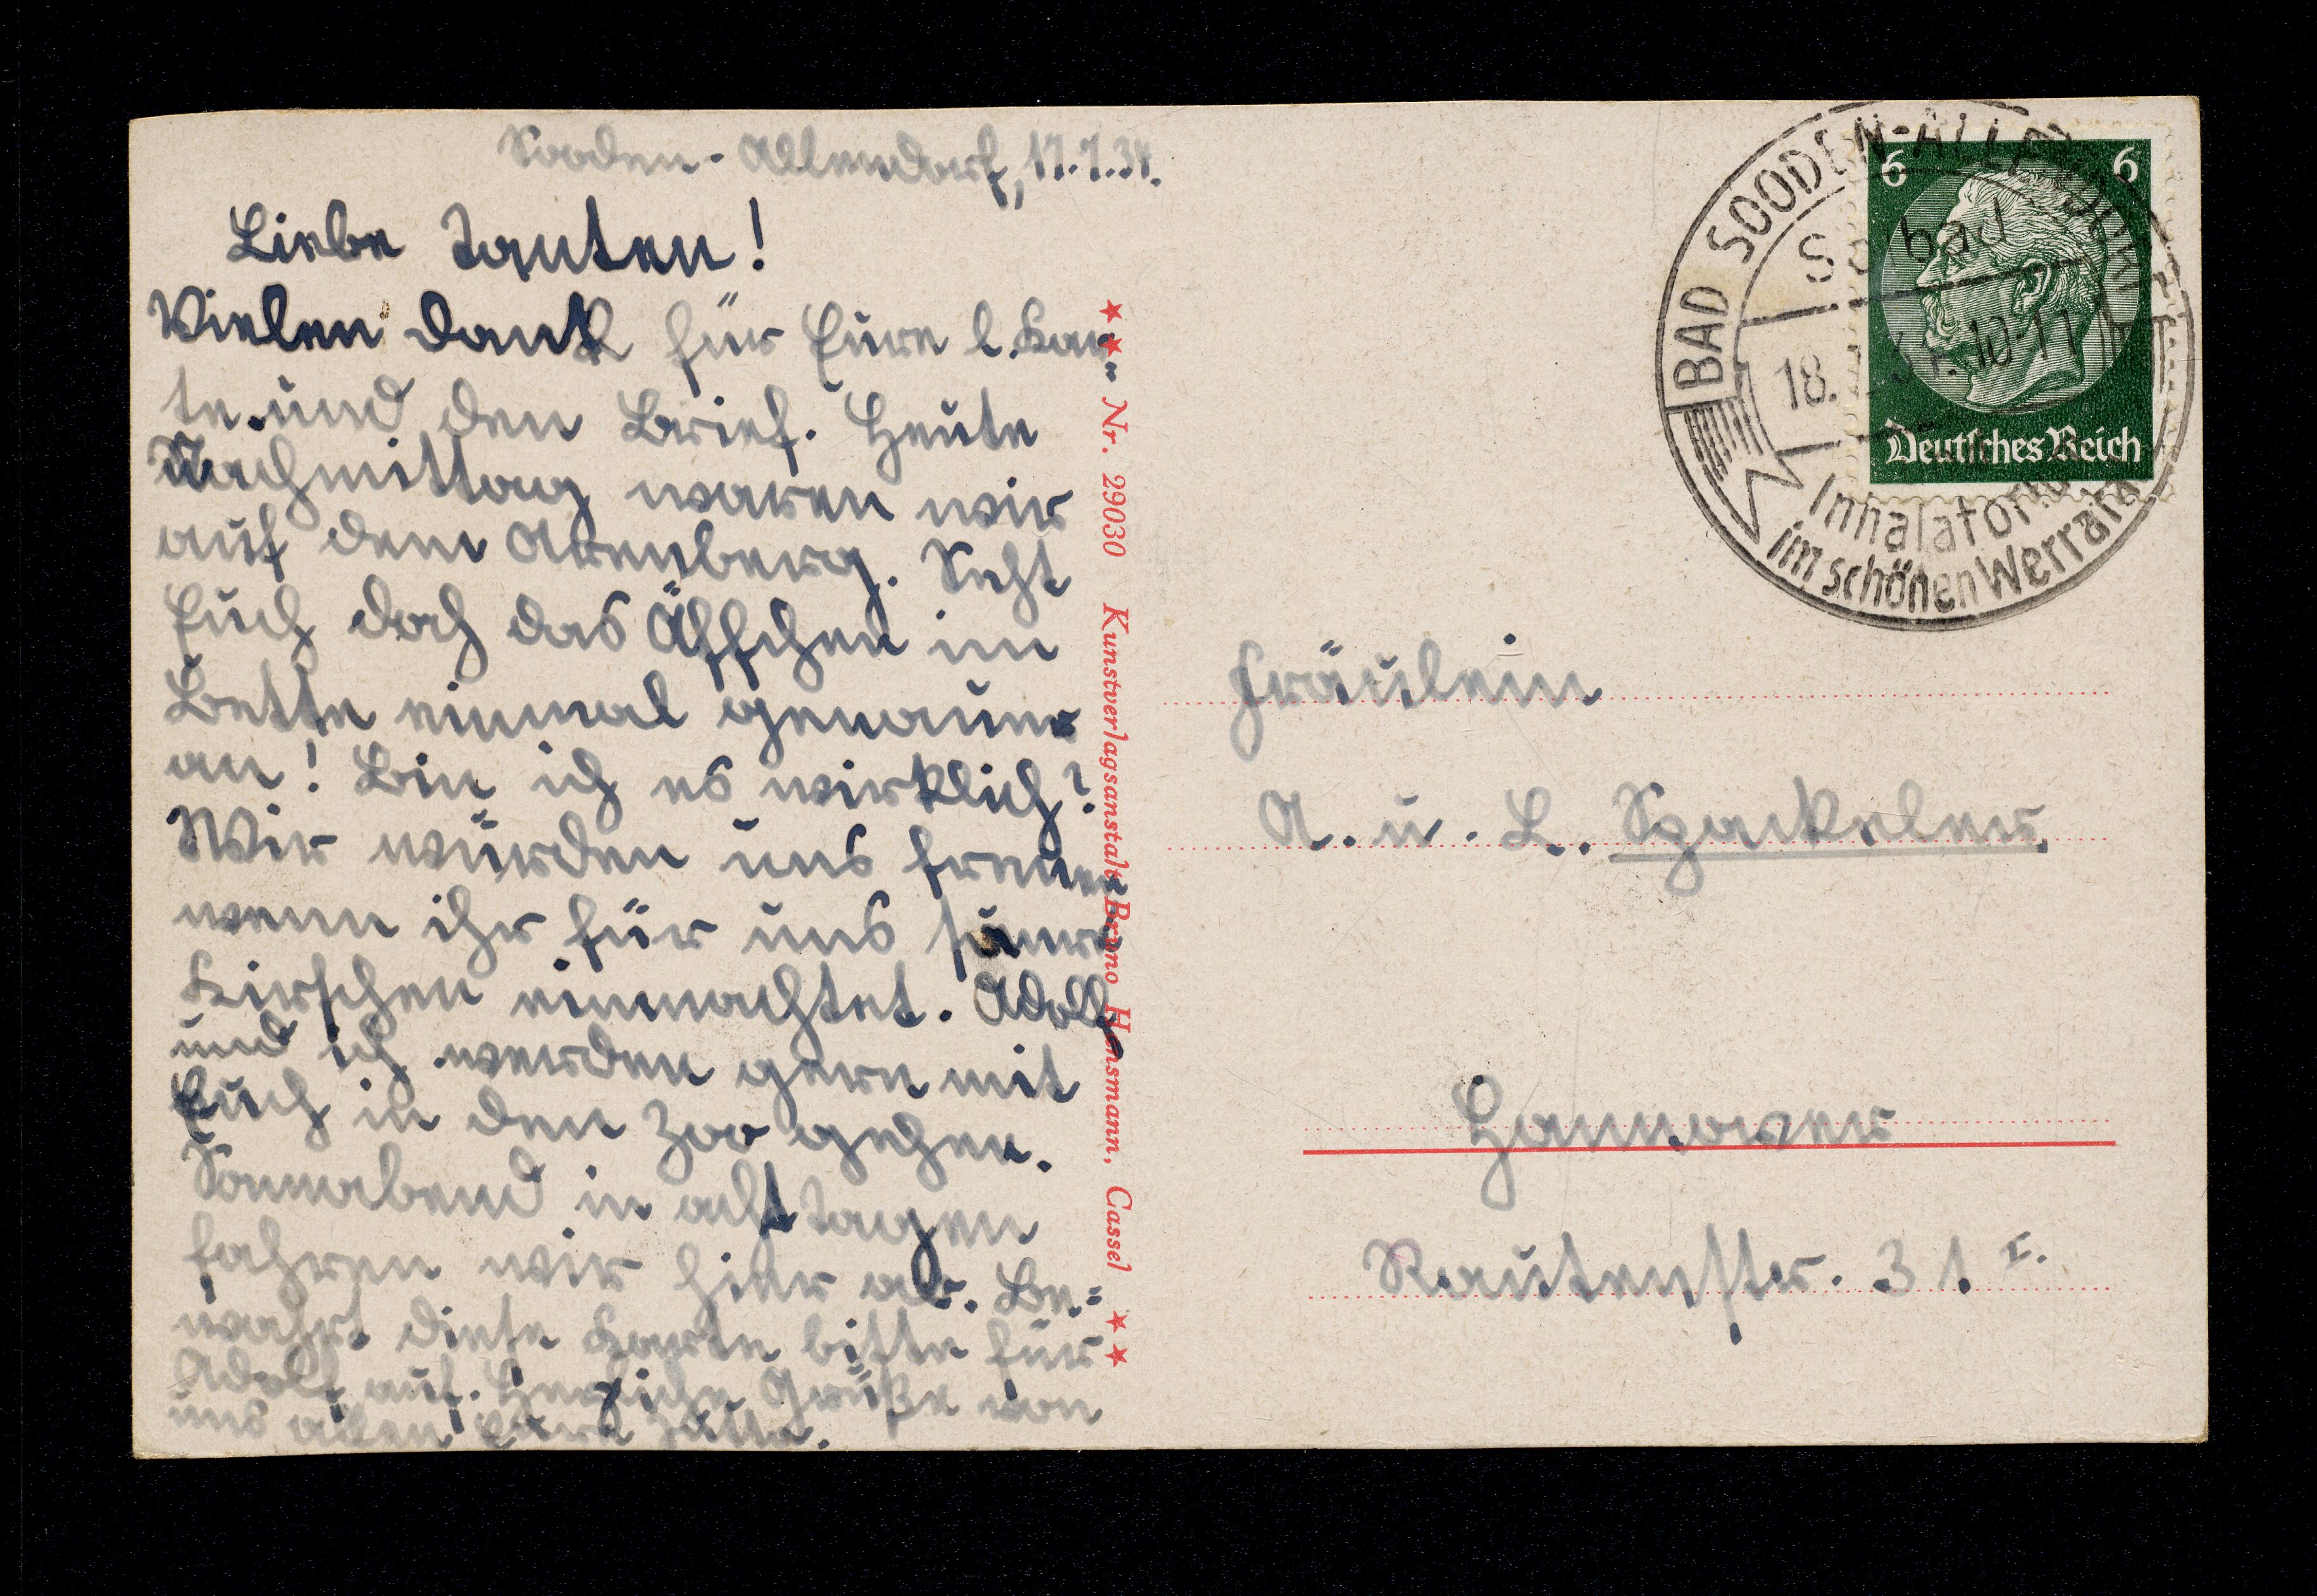 Sooden-Allendorf, 17.7.34.
Liebe Tanten!
Vielen Dank für Eure l. Kar-
te und den Brief. Heute
Nachmittag waren wir
auf dem Arenberg. Seht
Euch doch das Äffchen im
Bette einmal genauer
an! Bin ich es wirklich?
Wir würden uns freuen
wenn ihr für uns saure
Kirschen einmachtet. Adolf
und ich werden gern mit
Euch in den Zoo gehen.
Sonnabend in acht Tagen
fahren wir hier ab. Be=
wahrt diese Karte bitte für
Adolf auf. Herzliche Grüße von
uns allen Eure
★★ Nr. 29030 Kunstverlagsanstalt Bruno Hansmann, Cassel ★★
BAD SOODEN-ALLENDORF
Solbad
18. 34. 10-11
Inhalatorium
im schönen Werratal
6 6
Deutsches Reich
Fräulein
A. u. L. Spackeler,
Hannover
Rautenstr. 31 I.